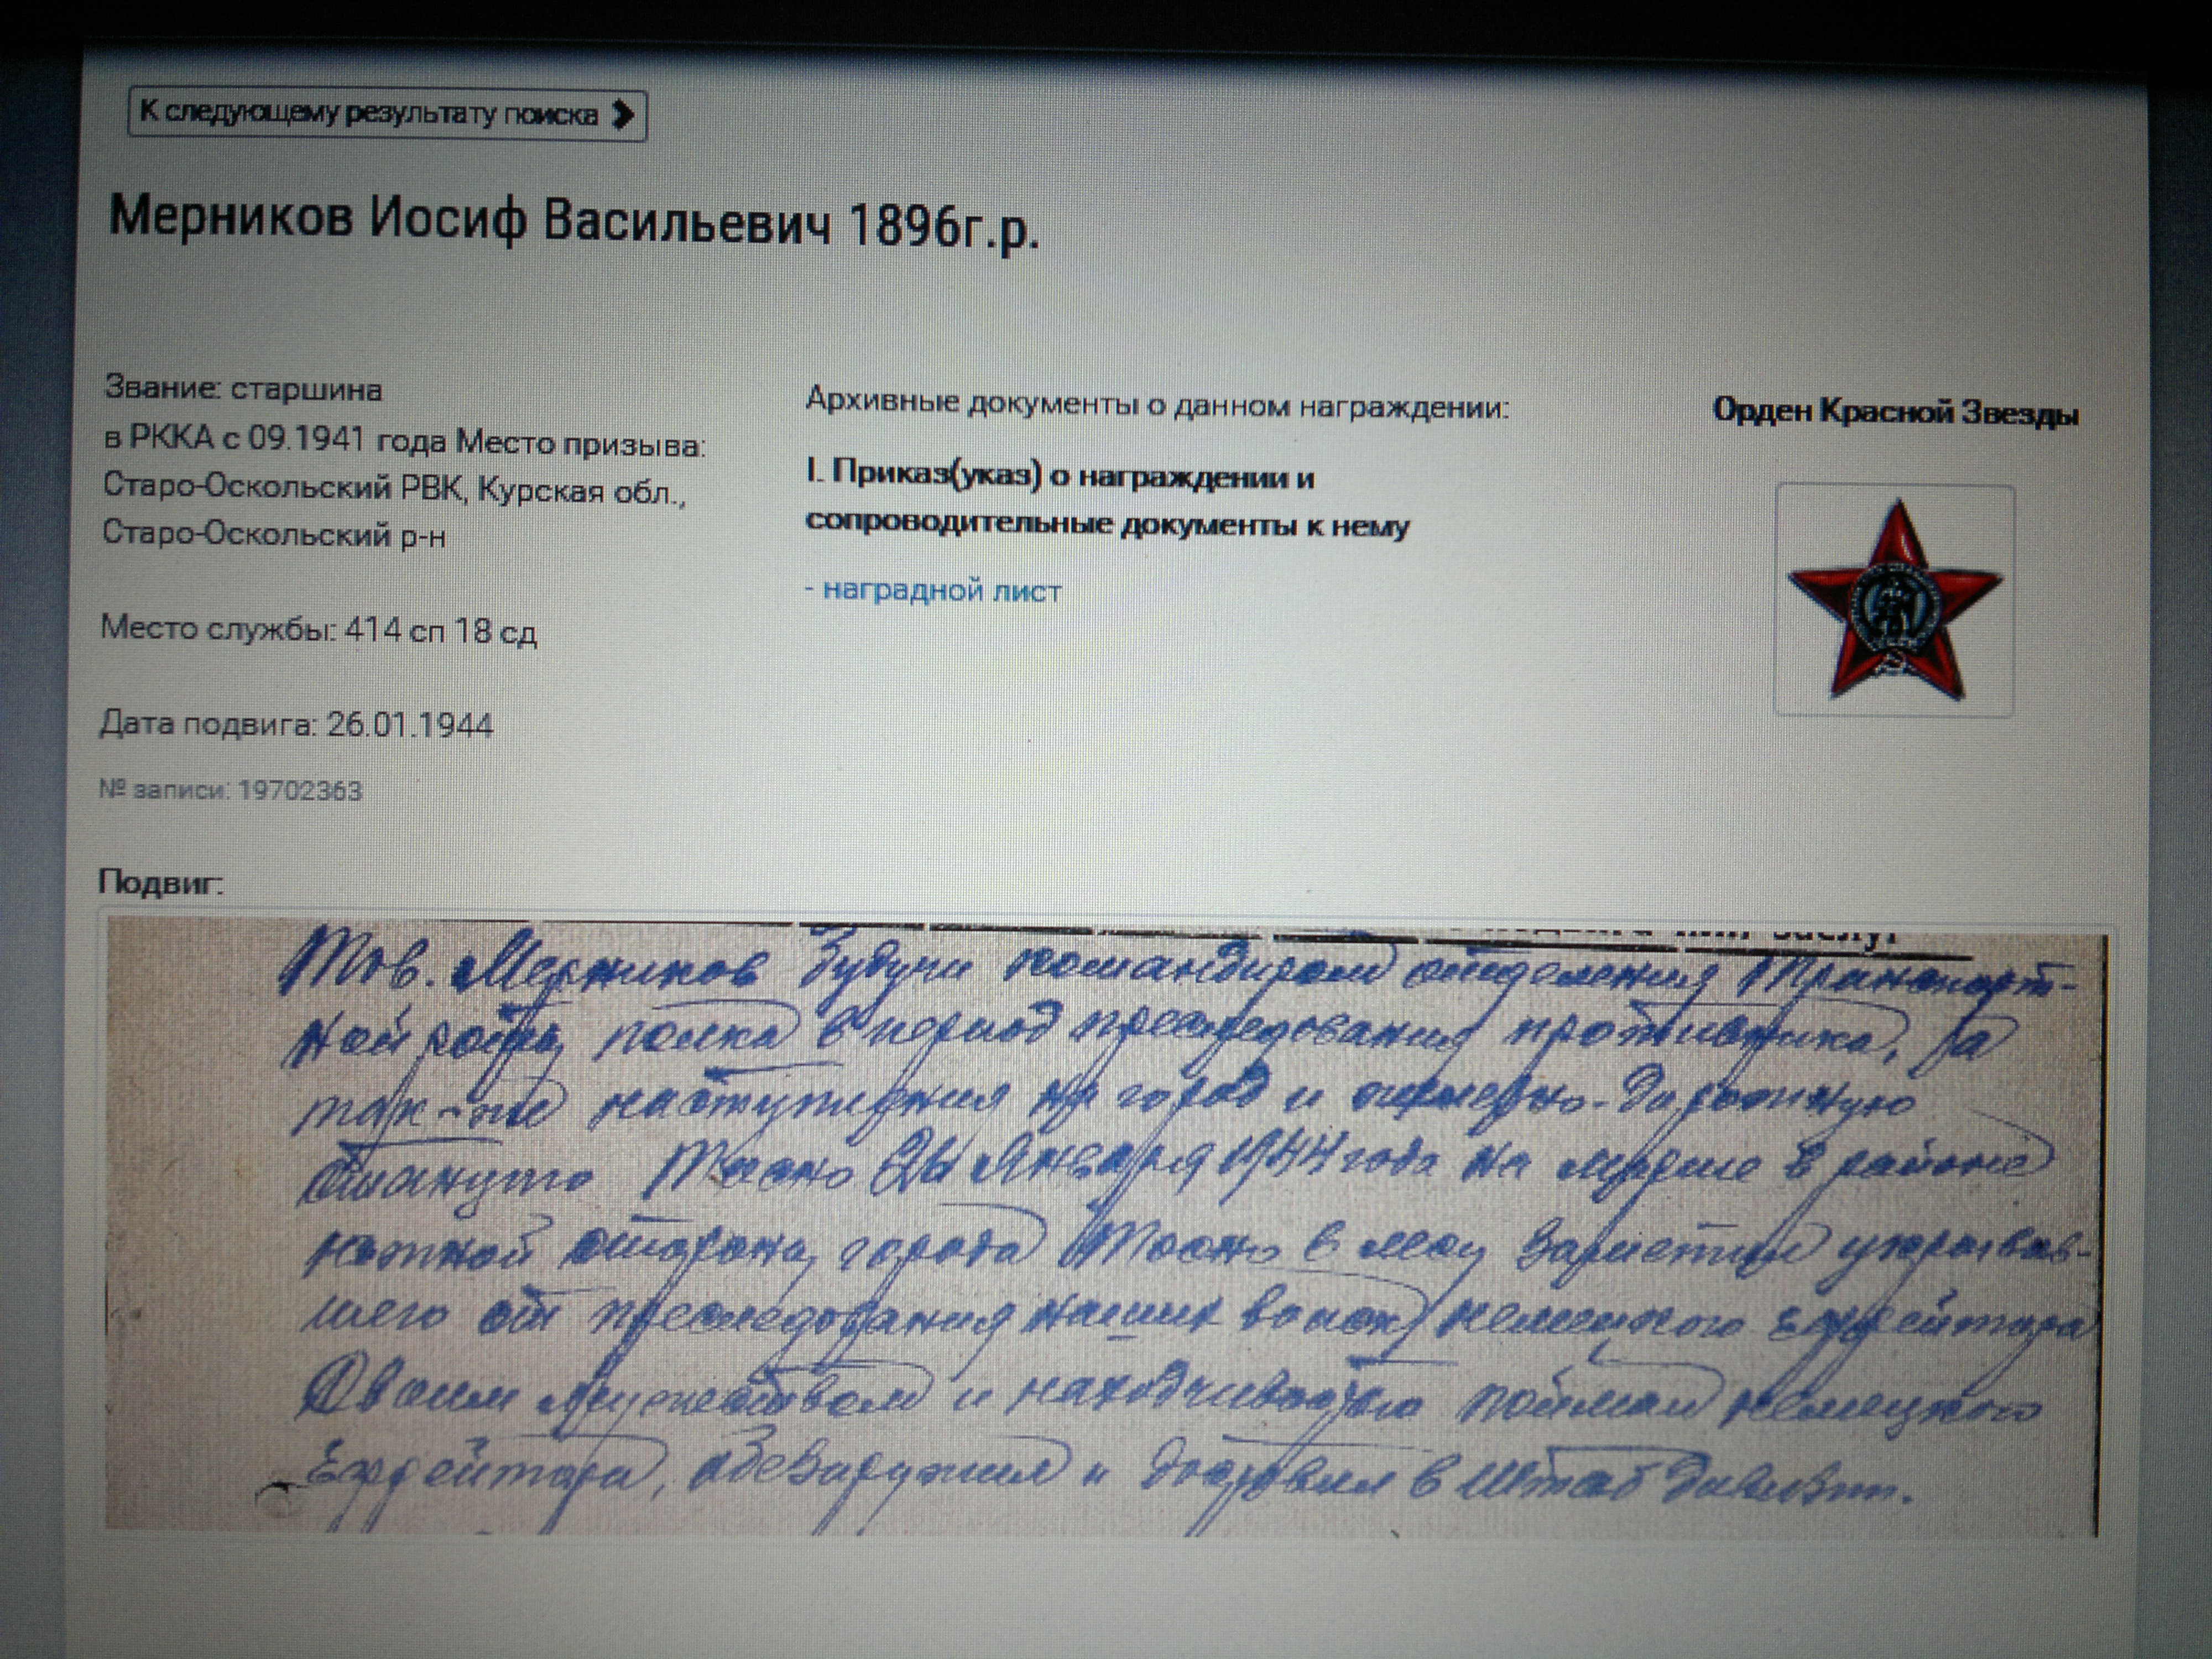 К следующему результату поиска
Мерников Иосиф Васильевич 1896г.р.
Звание: старшина
в РККА с 09.1941 года Место призыва:
Старо-Оскольский РВК, Курская обл.,
Старо-Оскольский р-н
Место службы: 414 сп 18 сд
Дата подвига: 26.01.1944
№ записи: 19702363
Архивные документы о данном награждении:
I. Приказ(указ) о награждении и
сопроводительные документы к нему
- наградной лист
Орден Красной Звезды
Подвиг:
Тов. Мерников будучи командиром отделения транспорт-
ной роты полка в период преследования противника, а
так-же наступления на город и железно-дорожную
станцию Тосно 26 Января 1944 года на марше в районе
южной стороны города Тосно в лесу заметил укрывав-
шего от преследования наших войск немецкого Ефрейтора
Своим мужеством и находчивостью поймал немецкого
Ефрейтора, обезаружил и доставил в штаб дивизии.